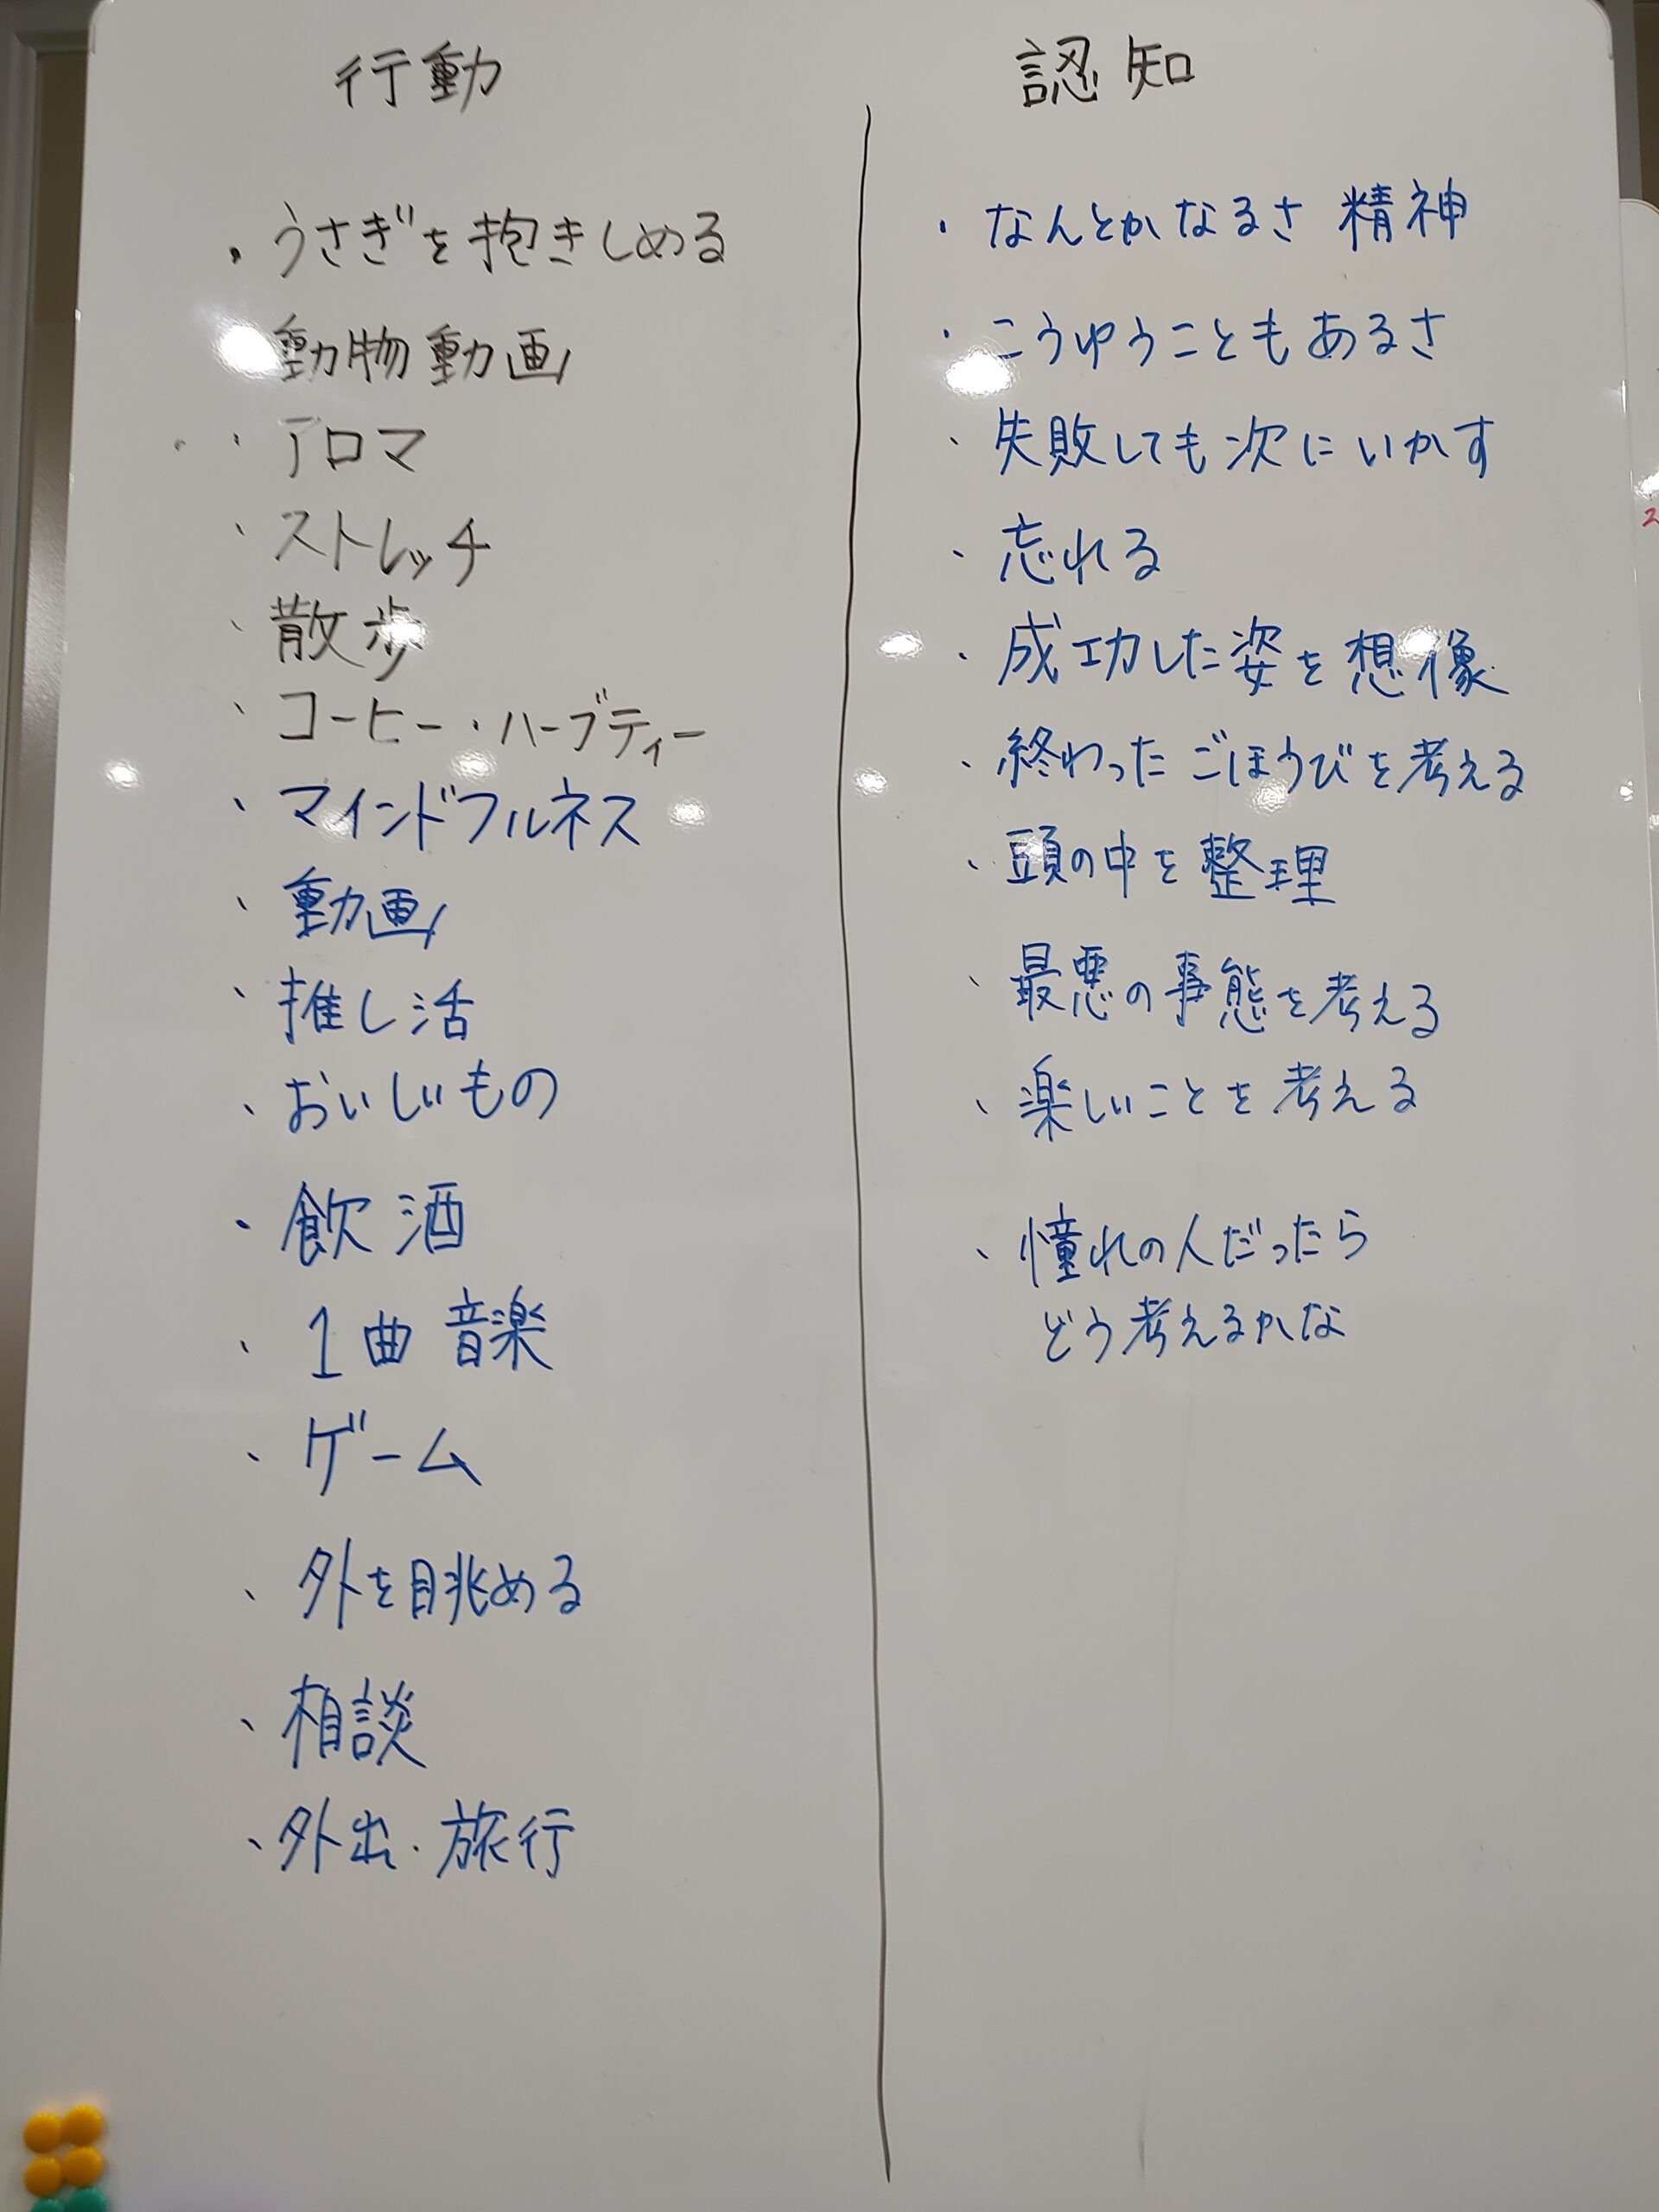 行動
・うさぎを抱きしめる
動物動画
・アロマ
・ストレッチ
・散歩
・コーヒー・ハーブティー
・マインドフルネス
・動画
・推し活
・おいしいもの
・飲酒
・1曲 音楽
・ゲーム
・外を眺める
・相談
・外出・旅行
認知
・なんとかなるさ 精神
・こうゆうこともあるさ
・失敗しても次にいかす
・忘れる
・成功した姿を想像
・終わったごほうびを考える
・頭の中を整理
・最悪の事態を考える
・楽しいことを考える
・憧れの人だったら
どう考えるかな